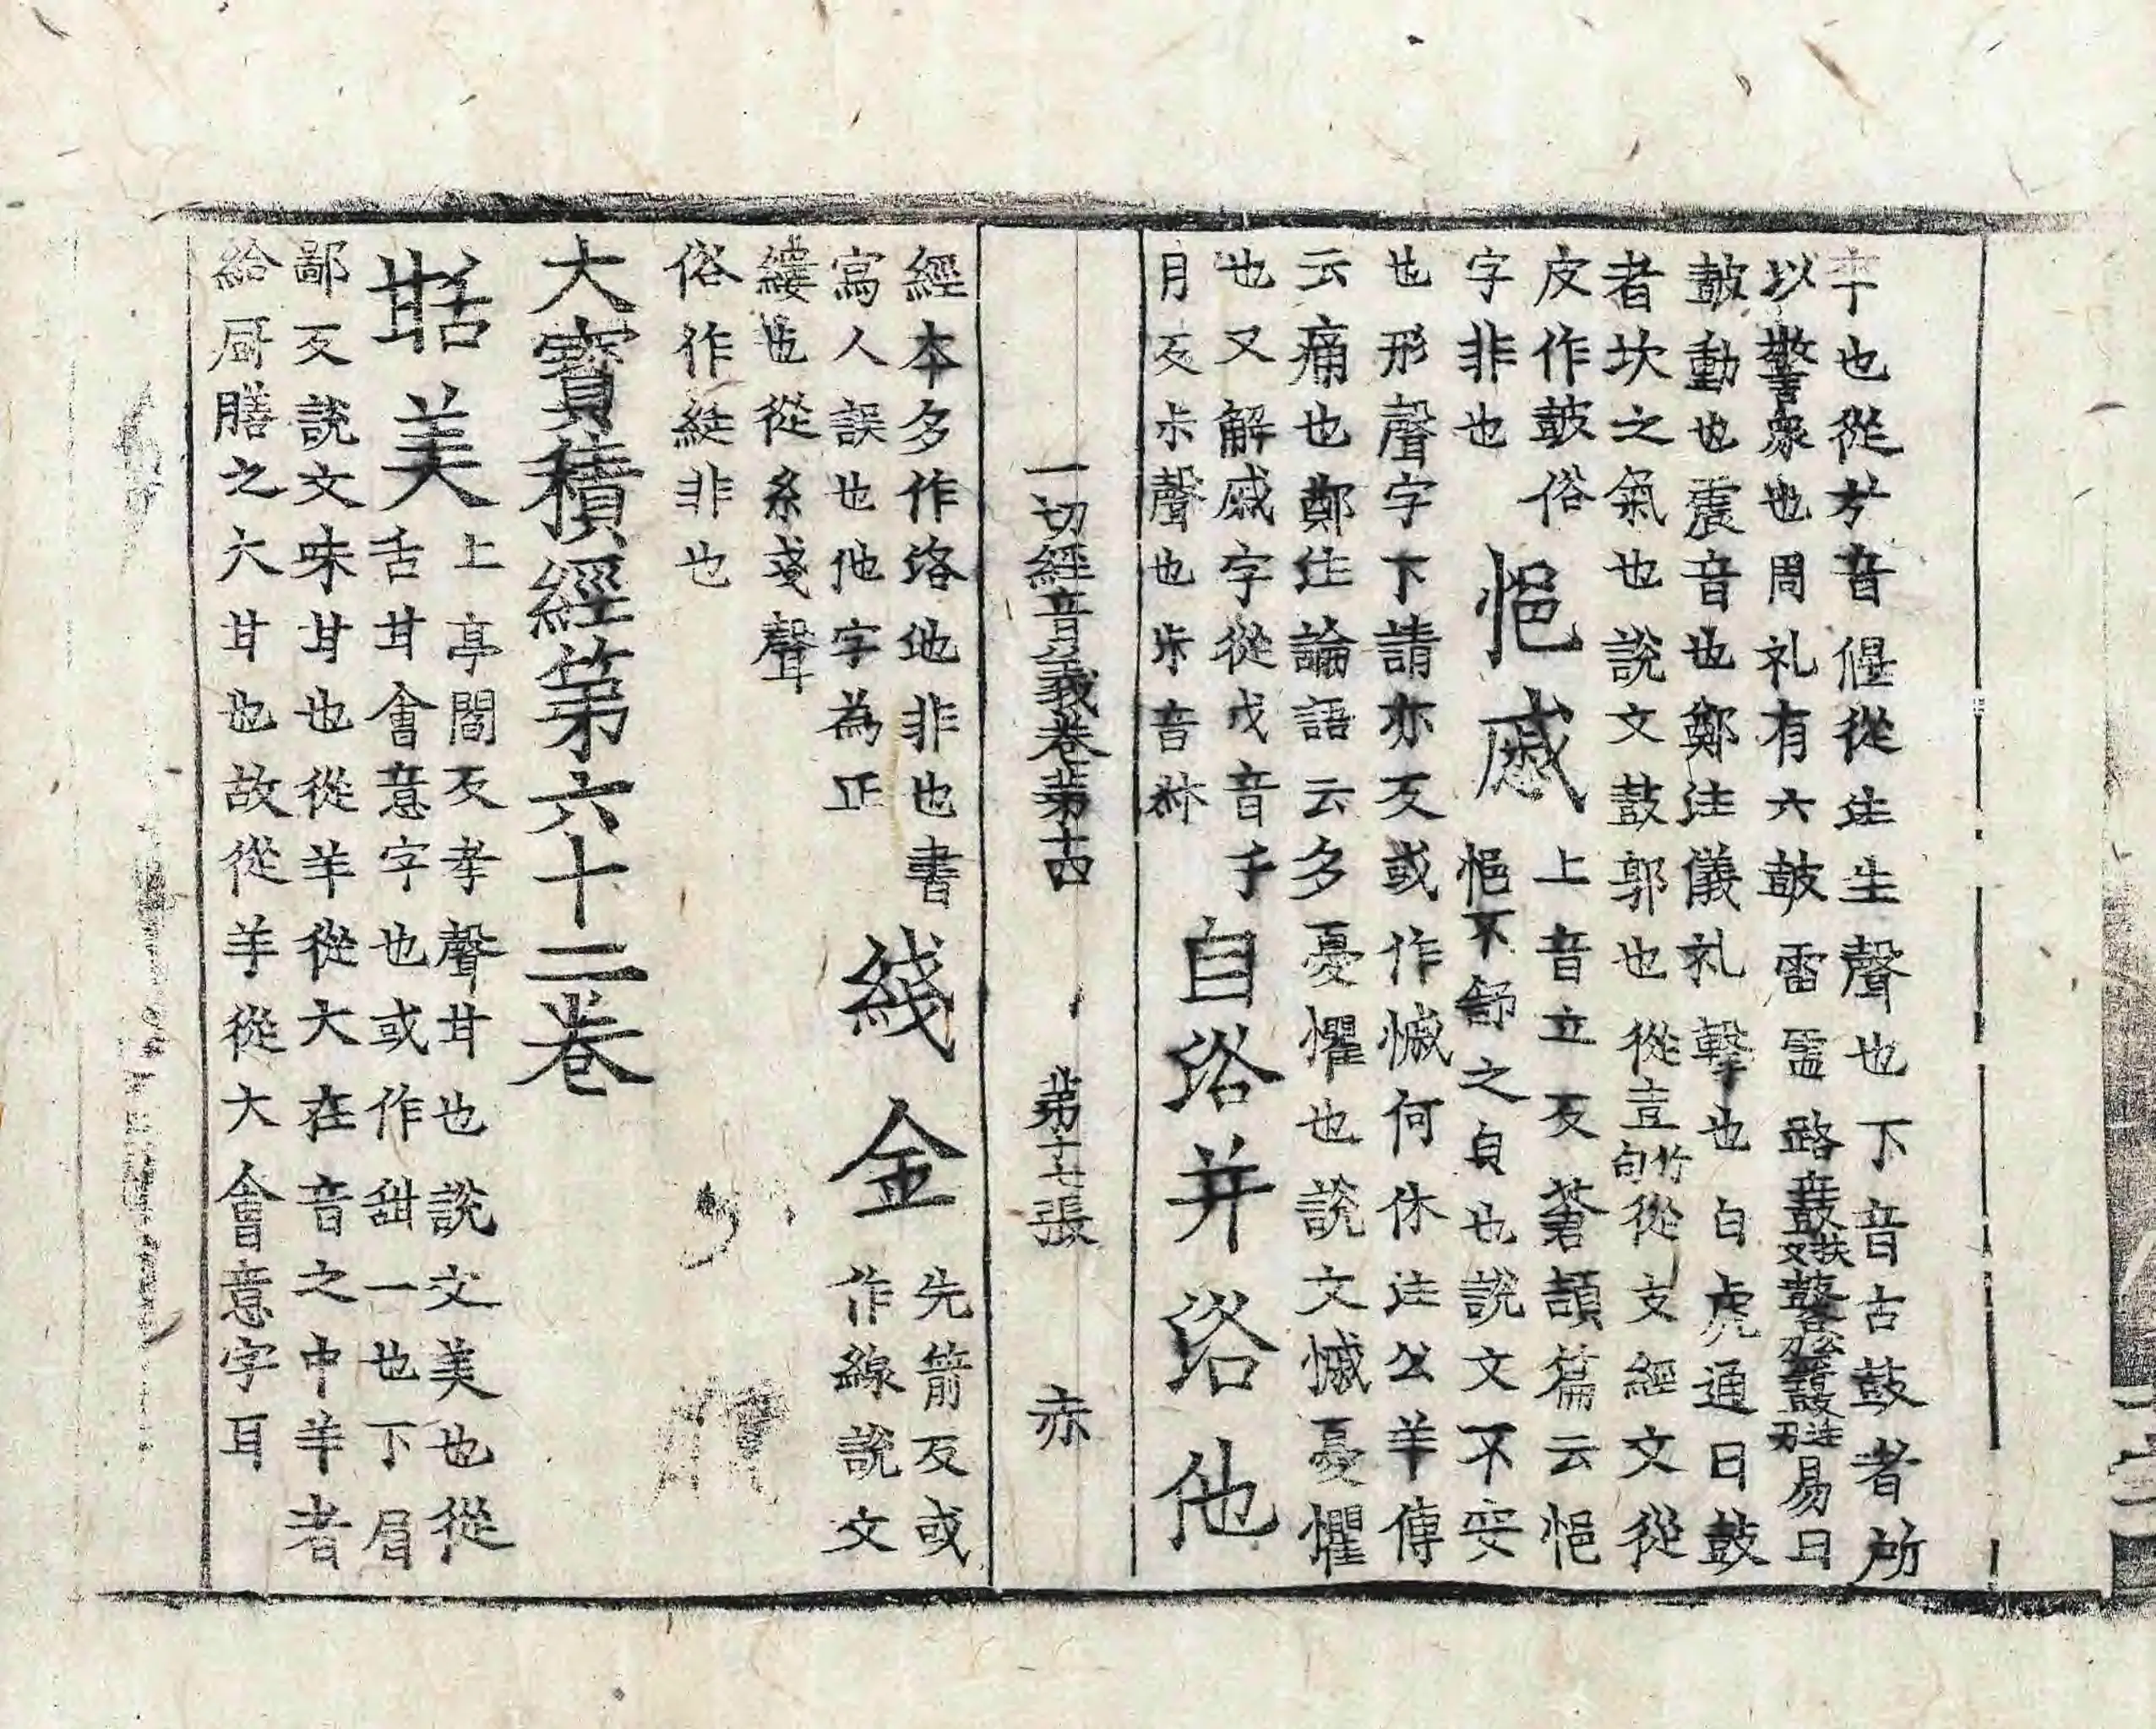 也從㫄音偃從生生聲也下音古鼓者所
以警衆也周礼有六鼓雷靈路鼖鼛晉易曰
鼓動也震音也鄭注儀礼擊也白虎通曰鼓
者坎之氣也說文鼓郭也從壴從支經文從
皮作皷俗字非也
悒慼
上音立反蒼頡篇云悒
悒不舒之皃也說文不安
也形聲字下請亦反或作慽何休注公羊傳
云痛也鄭注論語云多憂懼也說文慽憂懼
也又解戚字從戊音于月反尗聲也
自洛并洛他
經本多作洛他非也書
寫人誤也他字為正
綫金
先箭反或作線說文
縷也從糸戔聲
俗作綖非也
一切經音義卷第十四 第十七張 赤
大寶積經第六十二卷
甛美
上亭閻反孝聲甘也說文美也從
舌甘會意字也或作甜一也下眉
鄙反說文味甘也從羊從大在音之中羊者
給厨膳之大甘也故從羊從大會意字耳